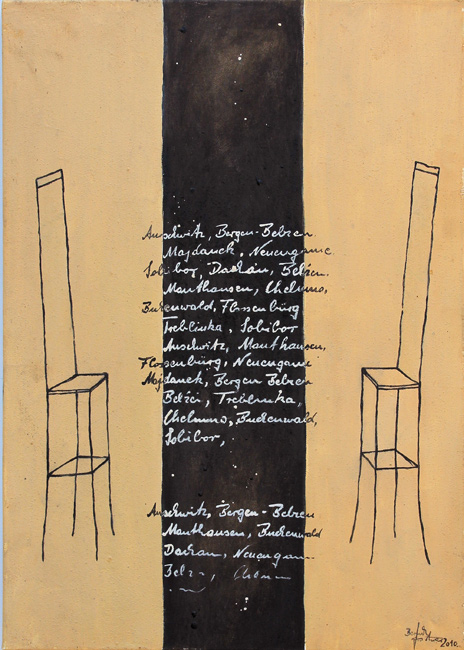 Auschwitz, Bergen-Belzen
Majdaneck, Neuengame
Sobibor, Dachau, Belzen.
Manthausen, Chelmno,
Buchenwald, Flossenbürg
Treblinka, Sobibor
Auschwitz, Manthausen,
Flossenbürg, Neuengame
Majdaneck, Bergen Belzen
Belzei, Treblinka,
Chelmno, Buchenwald,
Sobibor,
Auschwitz, Bergen-Belzen
Manthausen, Buchenwald
Dachau, Neuengam
2010